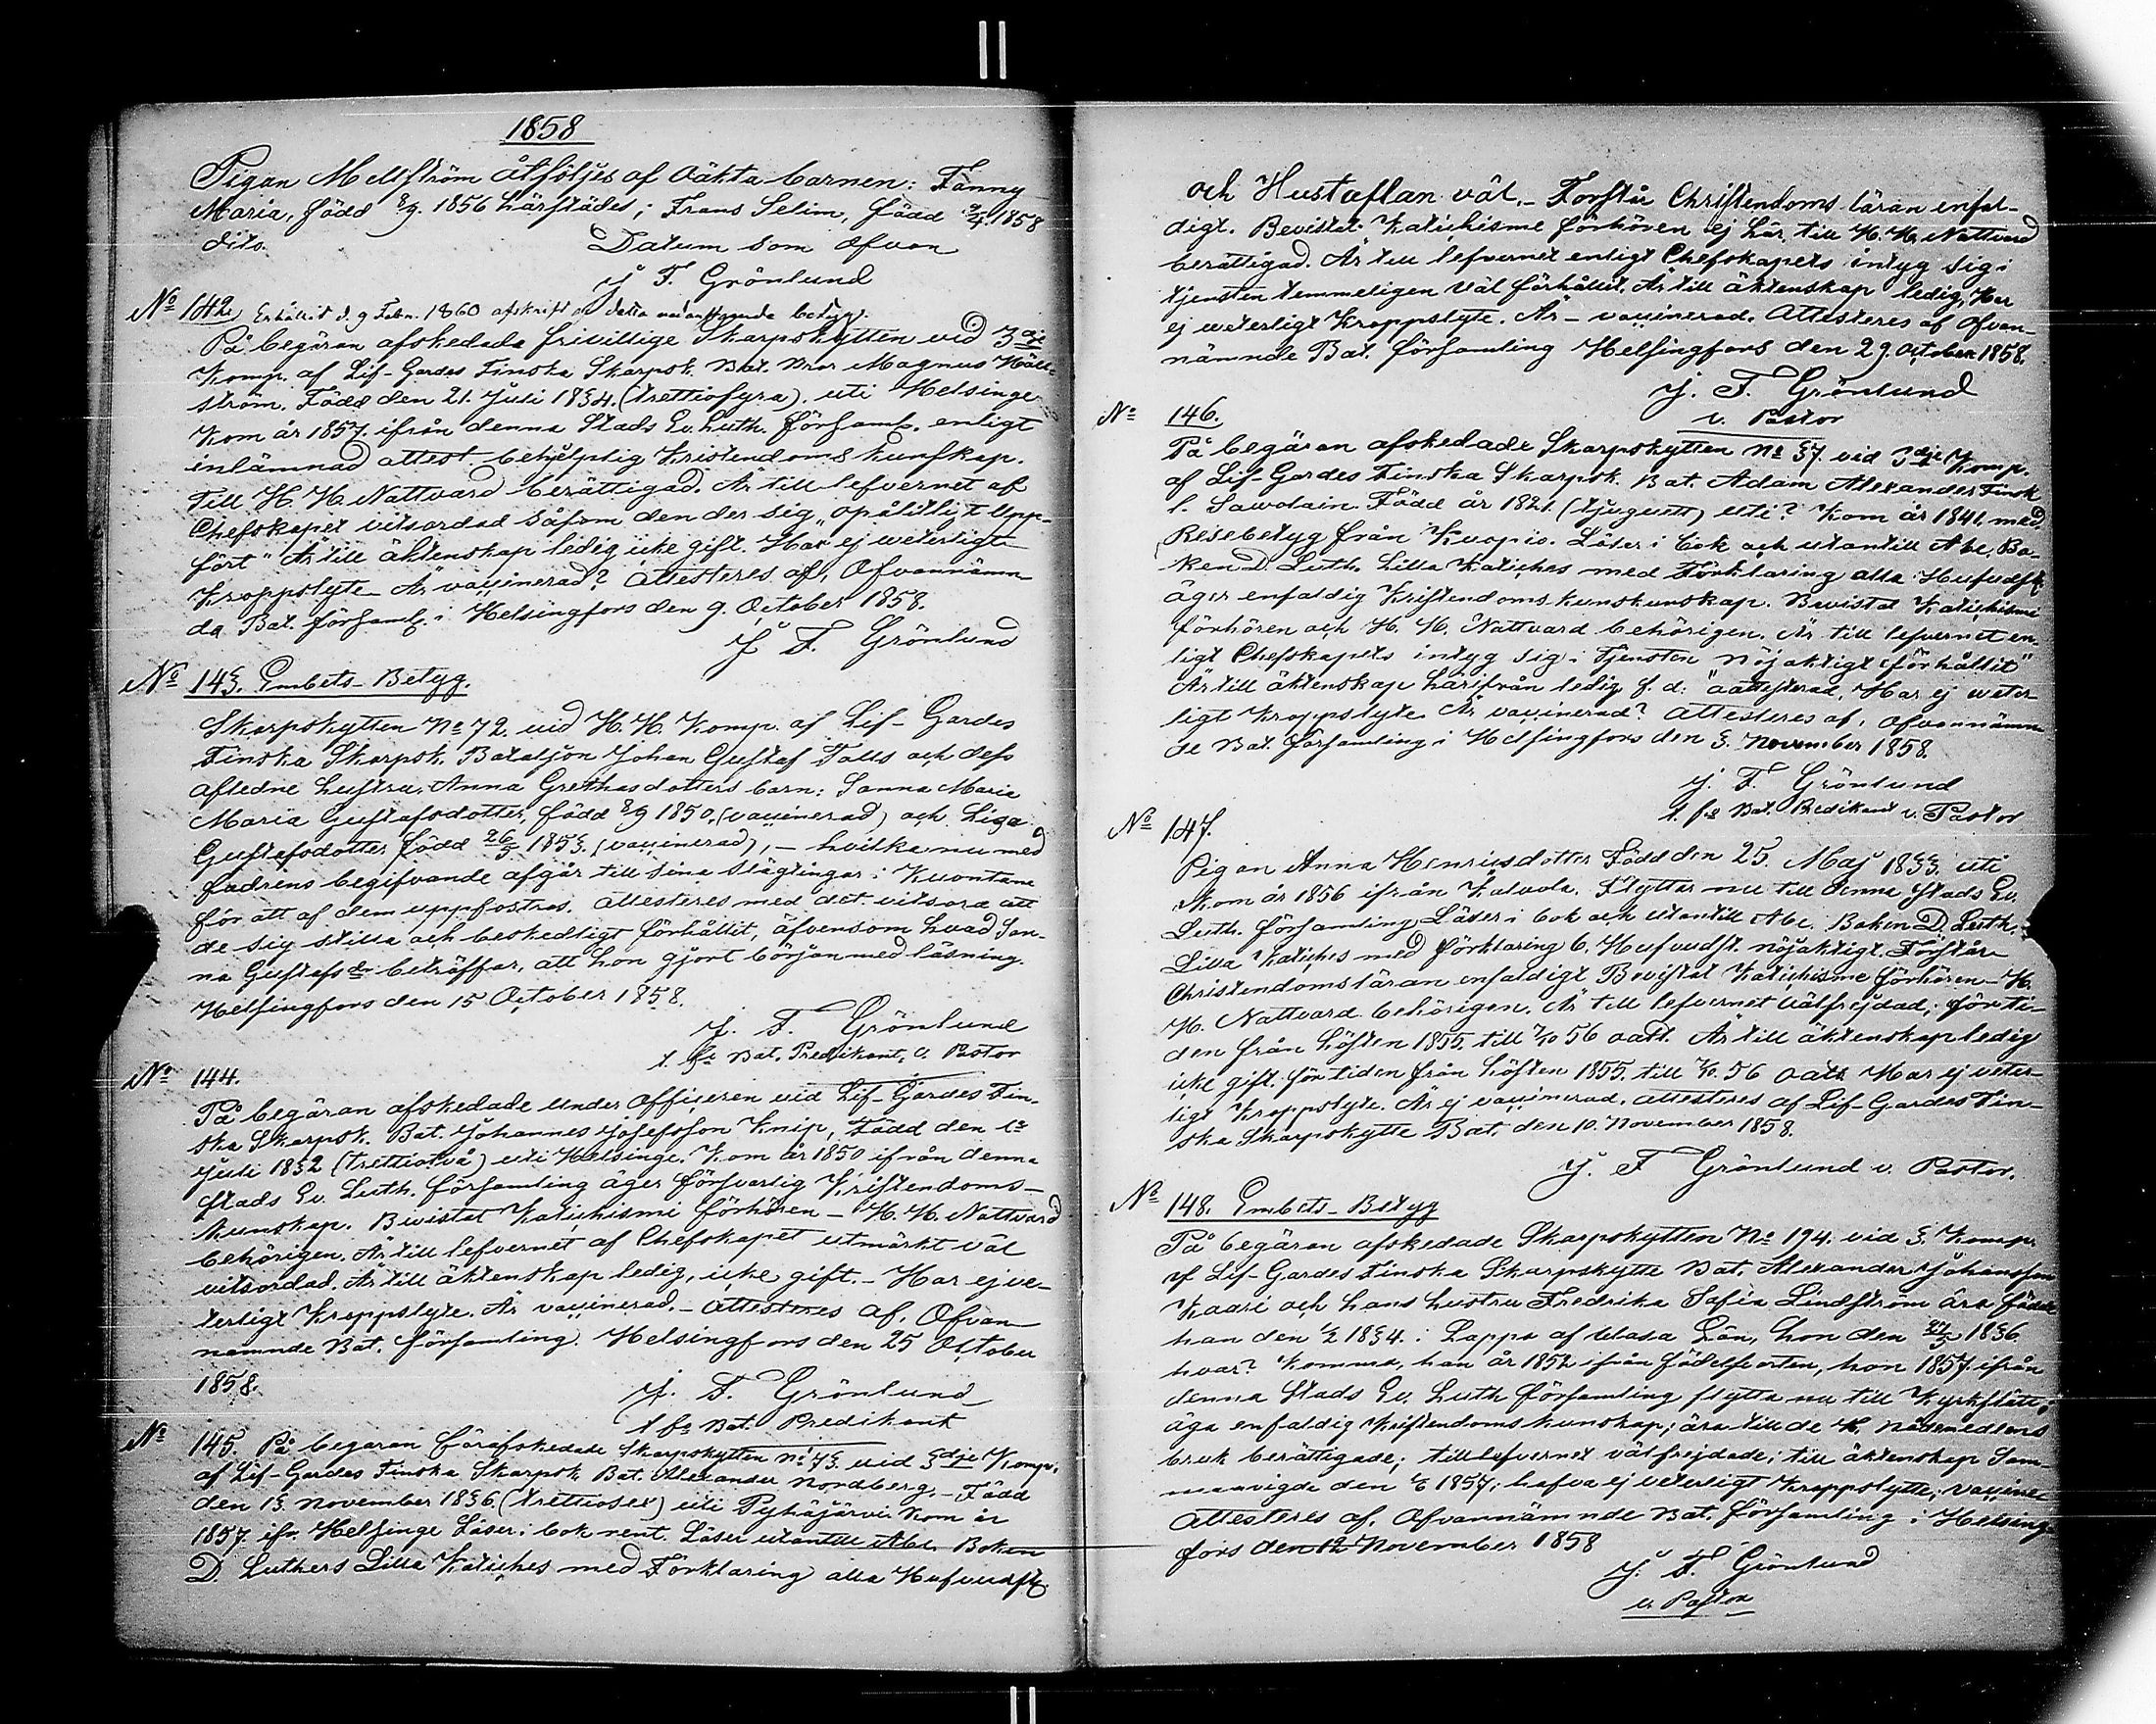 1858
Pigan Mellström åtföljes af oäkta barnen: Fanny
Maria, född 8/9. 1856 härstädes; Frans Selim, född 9/4. 1858
dito.
Datum som ofvan
J. F. Grönlund
No 142. Erhållit d. 9 Febr. 1860 afskrift af detta vidanstående betyg.
På begäran afskedade frivillige Skarpskytten vid 3dje
Komp. af Lif-Gardes Finska Skarpsk. Bat. Magnus Häll-
ström. Född den 21. Juli 1834. (trettiofyra). uti Helsinge
Kom år 1857. ifrån denna Stads Ev. Luth. församl. enligt
inlämnad attest. behjelplig Kristendoms kunskap.
Till H. H. Nattvard berättigad. Är till lefvernet af
Chefskapet vitsordad såsom den der sig „opålitligt upp-
fört" Är till äktenskap ledig icke gift. Har ej weterligt
Kroppslyte. Är vaccinerad? Attesteras af, Ofvannämn-
da Bat. församl. i Helsingfors den 9. October 1858.
J. F. Grönlund
No 143. Embets-Betyg.
Skarpskytten No 72. vid H. H. Komp. af Lif-Gardes
Finska Skarpsk. Bataljon Johan Gustaf Falls och dess
aflidne hustru, Anna Grethasdotters barn: Sanna Maria
Maria Gustafsdotter, född 8/9 1850. (vaccinerad) och Lisa
Gustafsdotter, född 26/5 1853. (vaccinerad), – hvilka nu med
fadrens begifvande afgår till sina slägtingar i Kuontane
för att af dem uppfostras. Attesteras med det vitsord att
de sig stilla och beskedligt förhållit, äfvensom hvad San-
na Gustafsdr beträffar, att hon gjort början med läsning.
Helsingfors den 15 October 1858.
J. F. Grönlund
t. f. Bat. Predikant, v. Pastor
No 144.
På begäran afskedade Under officeren vid Lif-Gardes Fin-
ska Skarpsk. Bat. Johannes Josefsson Knip, Född den 1a
Juli 1832 (trettiotvå) uti Helsinge. Kom år 1850 ifrån denna
Stads Ev. Luth. församling äger försvarlig Kristendoms-
kunskap. Bevistat Katichismi förhören – H. H. Nattvard
behörigen. Är till lefvernet af Chefskapet utmärkt väl
vitsordad. Är till äktenskap ledig, icke gift. – Har ej ve-
terligt Kroppslyte. Är vaccinerad. – Attesteras af, Ofvan-
nämnde Bat. församling. Helsingfors den 25 October
1858.
J. F. Grönlund
t f. Bat. Predikant
No 145. På begäran förafskedade Skarpskytten No 73 vid 3dje Komp.
af Lif-Gardes Finska Skarpsk. Bat. Alexander Nordberg. – Född
den 13 November 1836 (trettiosex) uti Pyhäjärvi. Kom år
1857 ifr. Helsinge Läser i bok rent. Läser utantill Abc. Boken
D. Luthers Lilla Katiches med Förklaring alla Hufvudst.
och Hustaflan väl. – Förstår Christendoms läran enfal-
digt. Bevistat Katichisme förhören ej här, till H. H. Nattvard
berättigad. Är till lefvernet enligt Chefskapets intyg sig i
tjensten temmeligen väl förhållit. Är till äktenskap ledig, Har
ej weterligt Kroppslyte. Är – vaccinerad. Attesteras af Ofvan-
nämnde Bat. församling Helsingfors den 29. October 1858.
J. F. Grönlund
v. Pastor
No 146.
På begäran afskedade Skarpskytten No 37. vid 3dje Komp.
af Lif-Gardes Finska Skarpsk. Bat. Adam Alexander Finsk
l. Sawolain. Född år 1821. (tjuguett) uti? Kom år 1841. med
Resebetyg från Kuopio. Läser i bok och utantill Abc, Bo-
ken D. Luth. Lilla Katiches med Förklaring alla Hufvudst.
äger enfaldig Kristendomskunskunskap. Bevistat Katichismi
förhören och H. H. Nattvard behörigen. Är till lefvernet en-
ligt Chefskapets intyg sig i Tjensten "nöjaktigt förhållit"
Är till äktenskap härifrån ledig f. d. oattesterad. Har ej weter-
ligt Kroppslyte. Är vaccinerad? Attesteras af, Ofvannämn
de Bat. församling i Helsingfors den 3. November 1858.
J. F. Grönlund
t. f. Bat. Predikant v. Pastor
No 147.
Pigan Anna Henricsdotter Född den 25. Maj 1833. uti
Kom år 1856 ifrån Kalvola. Flyttar nu till denna Stads Ev.
Luth. församling Läser i bok och utantill Abc. Boken D. Luth.
Lilla Katiches med förklaring 6. Hufvudst. nöjaktigt. Förstår
Christendomsläran enfaldigt Bevistat Katichisme förhören – H.
H. Nattvard behörigen. Är till lefvernet välfrejdad; för ti-
den från hösten 1855. till 7/10 56 oatt. Är till äktenskap ledig
icke gift. för tiden från hösten 1855. till 7/10. 56 oatt. Har ej veter-
ligt Kroppslyte. Är ej vaccinerad. Attesteras af Lif-Gardes Fin-
ska Skarpskytte Bat. den 10. November 1858.
J. F. Grönlund v. Pastor.
No 148. Embets-Betyg
På begäran afskedade Skarpskytten No 194. vid 3. Komp.
af Lif-Gardes Finska Skarpskytte Bat. Alexander Johansson
Kadri och hans hustru Fredrika Sofia Lindström äro födde
han den 1/2 1834. i Lappo af Wasa Län, hon den 1836
hvar? Komma, han år 1852 ifrån födelseorten, hon 1857. ifrån
denna Stads Ev. Luth församling flytta nu till Kyrkslätt;
äga enfaldig Kristendoms kunskap; äro till de H. nådemedlens
bruk berättigade; till lefvernet välfrejdade; till äktenskap Sam-
manvigde den 1857; hafva ej veterligt Kroppslytte; vaccine
Attesteras af, Ofvannämnde Bat. församling i Helsing-
fors den 12 November 1858
J. F. Grönlund
v. Pastor